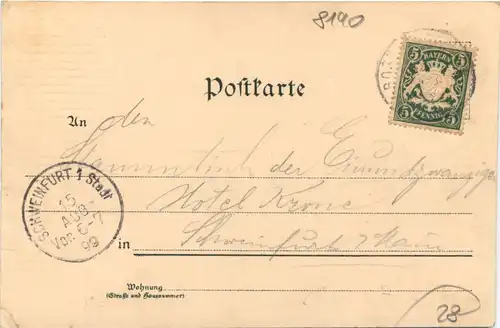 8190
BAYERN
5 5
5 5
PFENNIG
Postkarte
An den
Stammtisch der Einundzwanziger
Hotel Krone
in Schweinfurt a/Main
SCHWEINFURT 1 Stadt
15
AUG
Vor. 6-7
99
Wohnung
(Straße und Hausnummer)
28